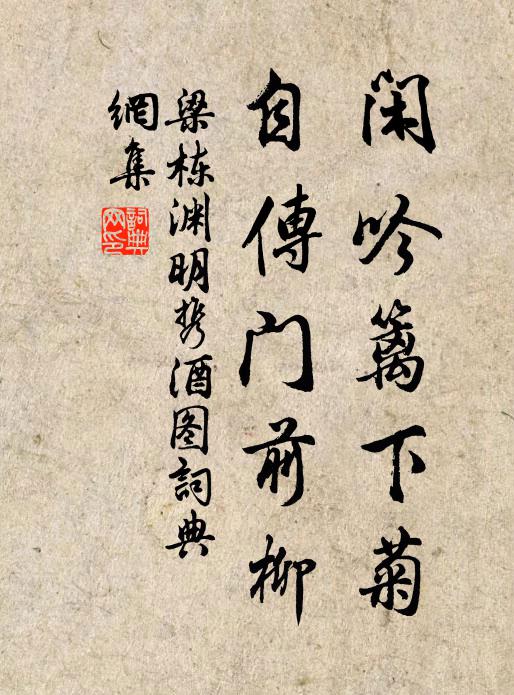 闲吟篱下菊
自傳门前柳
梁栋渊明携酒图詞典
網集
詞典
网印